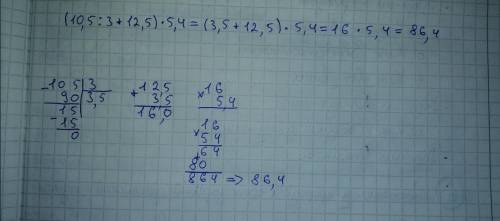 (10,5:3+12,5)·5,4=(3,5+12,5)·5,4=16·5,4=86,4
-10 5|3
90 |3,5
15
-15
0
+12,5
3,5
16,0
×16
5,4
×16
54
+64
80
864 => 86,4